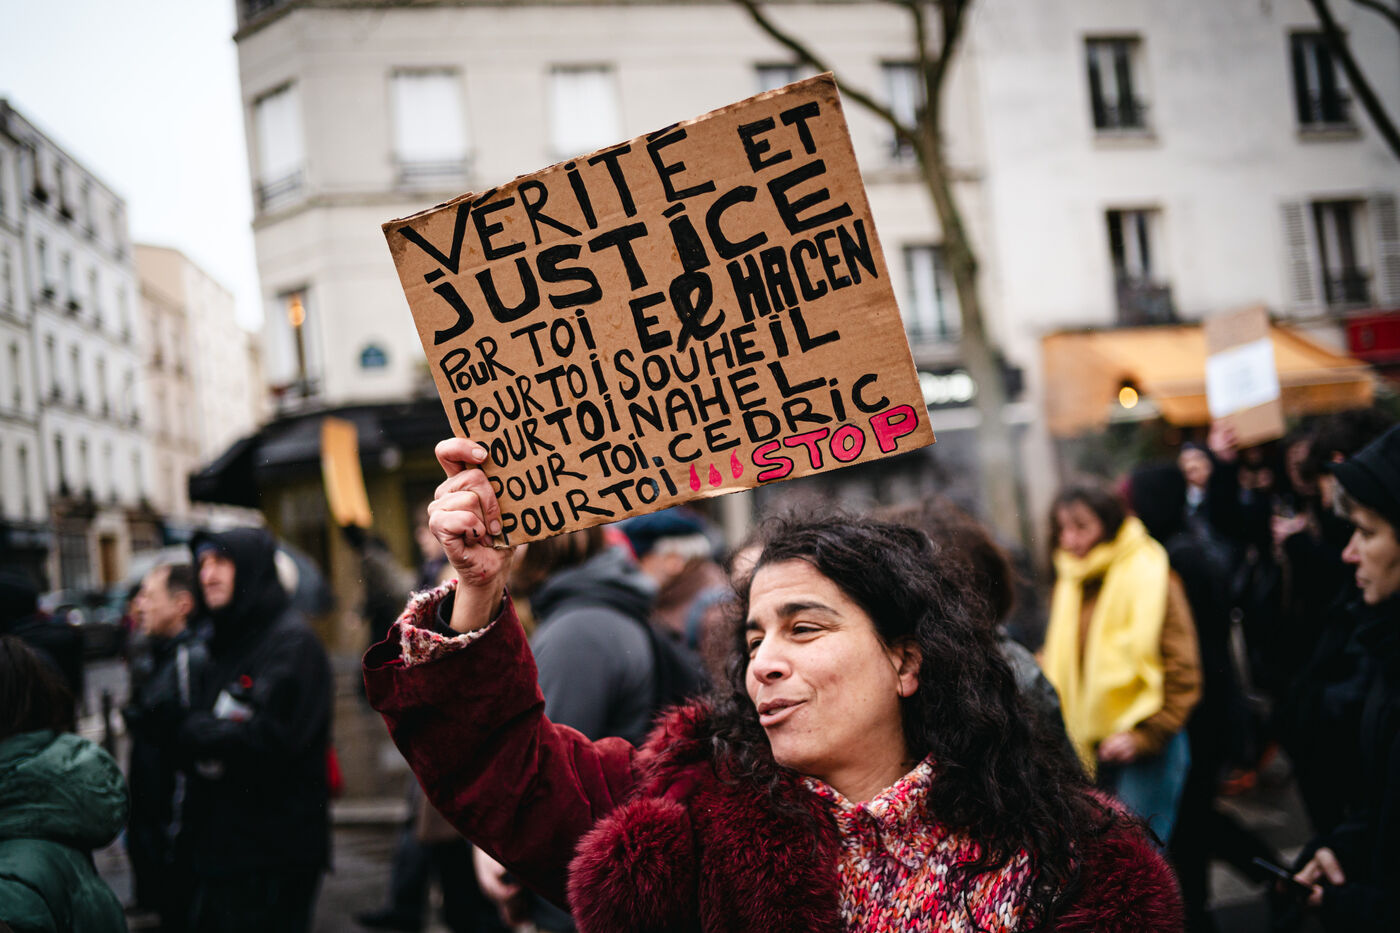 VÉRITÉ ET
JUSTICE
POUR TOI El HACEN
POUR TOI SOUHEIL
POUR TOI NAHEL
POUR TOI CEDRIC
POUR TOI STOP